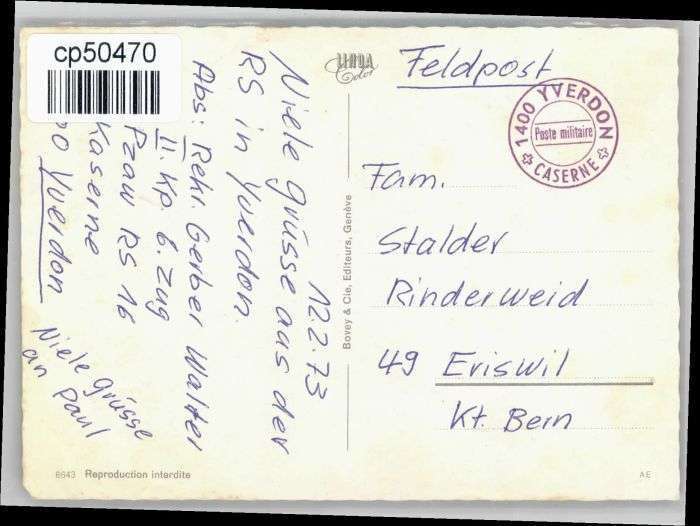 cp50470
12.2.73
Viele grüsse aus der
RS in Yverdon.
Abs: Rekr. Gerber Walter
II. Kp. 6. Zug
Pzaw RS 16
Kaserne
00 Yverdon
Viele grüsse
an Paul
LINDA
Color
Bovey & Cie, Editeurs, Genève
Feldpost
1400 YVERDON
Poste militaire
CASERNE
Fam.
Stalder
Rinderweid
49 Eriswil
Kt. Bern
8643 Reproduction interdite
AE